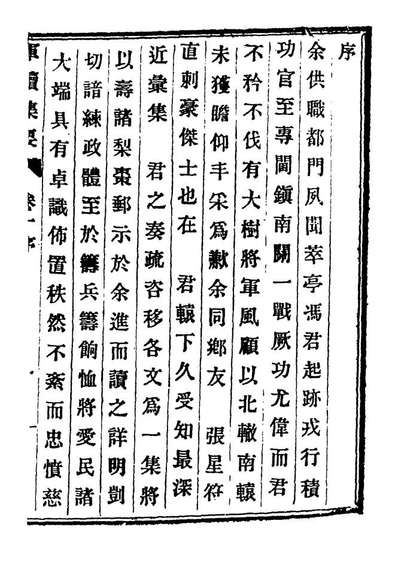 序
余供職都門夙聞萃亭馮君起跡戎行積
功官至專閫鎮南關一戰厥功尤偉而君
不矜不伐有大樹將軍風顧以北轍南轅
未獲瞻仰丰采爲歉余同鄉友　張星符
直刺豪傑士也在　君轅下久受知最深
近彙集　君之奏疏咨移各文爲一集將
以壽諸梨棗郵示於余進而讀之詳明剴
切諳練政體至於籌兵籌餉恤將愛民諸
大端具有卓識佈置秩然不紊而忠憤慈
軍牘集要　卷一序